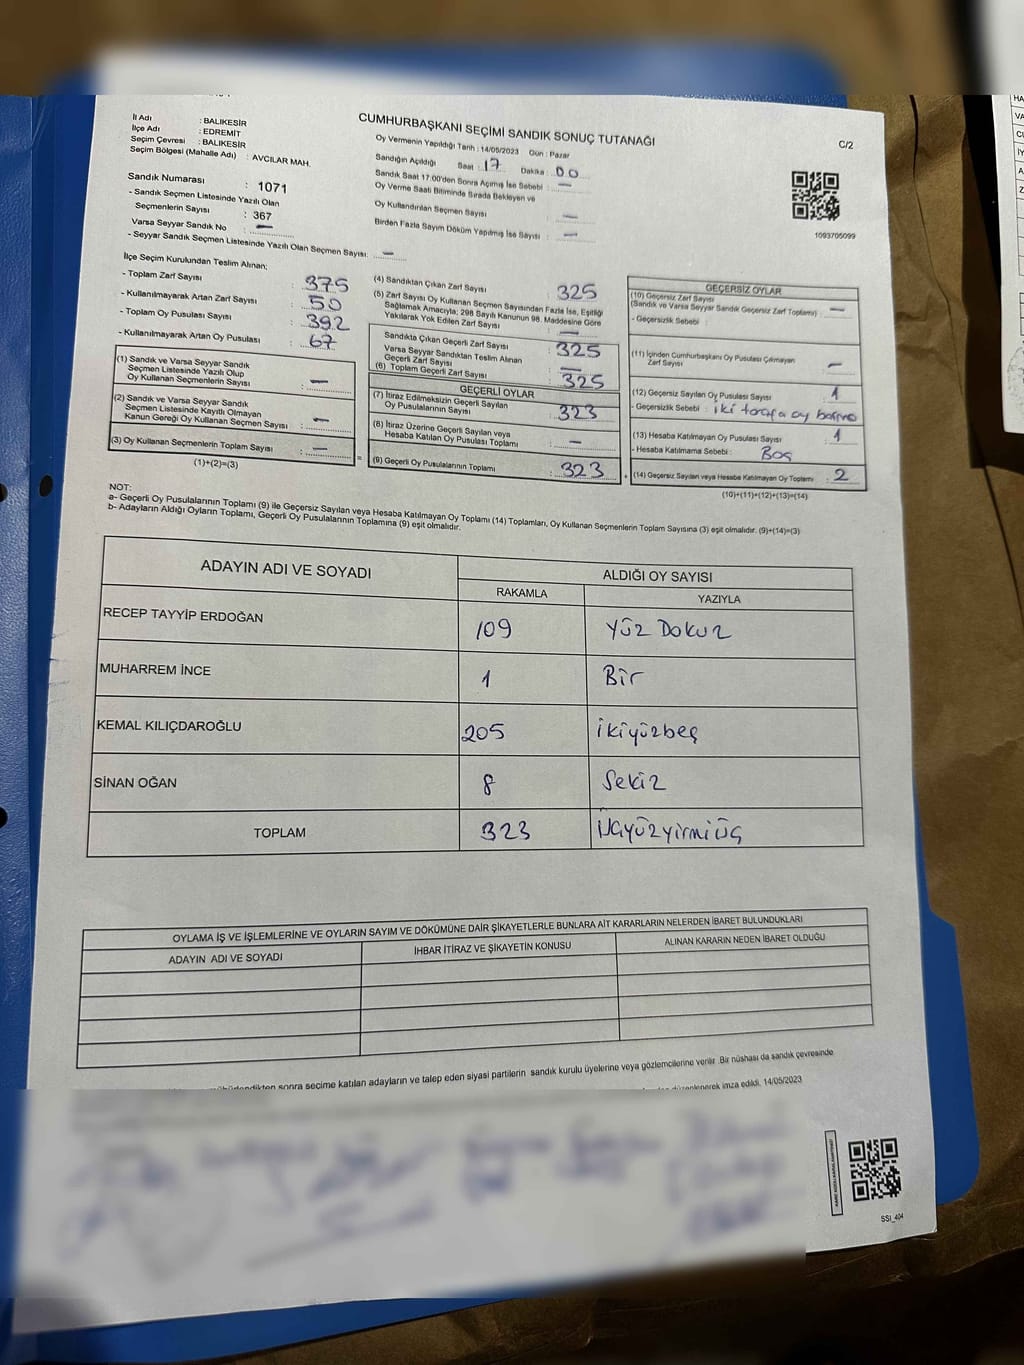 CUMHURBAŞKANI SEÇİMİ SANDIK SONUÇ TUTANAĞI
C/2
İl Adı : BALIKESİR
İlçe Adı : EDREMİT
Seçim Çevresi : BALIKESİR
Seçim Bölgesi (Mahalle Adı) : AVCILAR MAH.
Sandık Numarası : 1071
- Sandık Seçmen Listesinde Yazılı Olan
Seçmenlerin Sayısı : 367
Varsa Seyyar Sandık No : —
- Seyyar Sandık Seçmen Listesinde Yazılı Olan Seçmen Sayısı: —
Oy Vermenin Yapıldığı Tarih : 14/05/2023 Gün : Pazar
Sandığın Açıldığı Saat : 17 Dakika : 00
Sandık Saat 17:00'den Sonra Açılmış İse Sebebi : —
Oy Verme Saati Bitiminde Sırada Bekleyen ve
Oy Kullandırılan Seçmen Sayısı : —
Birden Fazla Sayım Döküm Yapılmış İse Sayısı : —
1093705099
İlçe Seçim Kurulundan Teslim Alınan;
- Toplam Zarf Sayısı : 375
- Kullanılmayarak Artan Zarf Sayısı : 50
- Toplam Oy Pusulası Sayısı : 392
- Kullanılmayarak Artan Oy Pusulası : 67
(1) Sandık ve Varsa Seyyar Sandık
Seçmen Listesinde Yazılı Olup
Oy Kullanan Seçmenlerin Sayısı : —
(2) Sandık ve Varsa Seyyar Sandık
Seçmen Listesinde Kayıtlı Olmayan
Kanun Gereği Oy Kullanan Seçmen Sayısı : —
(3) Oy Kullanan Seçmenlerin Toplam Sayısı : —
(1)+(2)=(3)
(4) Sandıktan Çıkan Zarf Sayısı : 325
(5) Zarf Sayısı Oy Kullanan Seçmen Sayısından Fazla İse, Eşitliği
Sağlamak Amacıyla; 298 Sayılı Kanunun 98. Maddesine Göre
Yakılarak Yok Edilen Zarf Sayısı : —
Sandıkta Çıkan Geçerli Zarf Sayısı : 325
Varsa Seyyar Sandıktan Teslim Alınan
Geçerli Zarf Sayısı : —
(6) Toplam Geçerli Zarf Sayısı : 325
GEÇERLİ OYLAR
(7) İtiraz Edilmeksizin Geçerli Sayılan
Oy Pusulalarının Sayısı : 323
(8) İtiraz Üzerine Geçerli Sayılan veya
Hesaba Katılan Oy Pusulası Toplamı : —
= (9) Geçerli Oy Pusulalarının Toplamı : 323
GEÇERSİZ OYLAR
(10) Geçersiz Zarf Sayısı
(Sandık ve Varsa Seyyar Sandık Geçersiz Zarf Toplamı) : —
- Geçersizlik Sebebi :
(11) İçinden Cumhurbaşkanı Oy Pusulası Çıkmayan
Zarf Sayısı : —
(12) Geçersiz Sayılan Oy Pusulası Sayısı : 1
- Geçersizlik Sebebi : iki tarafa oy basma
(13) Hesaba Katılmayan Oy Pusulası Sayısı : 1
- Hesaba Katılmama Sebebi : Boş
+ (14) Geçersiz Sayılan veya Hesaba Katılmayan Oy Toplamı : 2
(10)+(11)+(12)+(13)=(14)
NOT:
a- Geçerli Oy Pusulalarının Toplamı (9) ile Geçersiz Sayılan veya Hesaba Katılmayan Oy Toplamı (14) Toplamları, Oy Kullanan Seçmenlerin Toplam Sayısına (3) eşit olmalıdır. (9)+(14)=(3)
b- Adayların Aldığı Oyların Toplamı, Geçerli Oy Pusulalarının Toplamına (9) eşit olmalıdır.
ADAYIN ADI VE SOYADI ALDIĞI OY SAYISI
RAKAMLA YAZIYLA
RECEP TAYYİP ERDOĞAN 109 Yüz Dokuz
MUHARREM İNCE 1 Bir
KEMAL KILIÇDAROĞLU 205 ikiyüzbeş
SİNAN OĞAN 8 Sekiz
TOPLAM 323 Üçyüzyirmiüç
OYLAMA İŞ VE İŞLEMLERİNE VE OYLARIN SAYIM VE DÖKÜMÜNE DAİR ŞİKAYETLERLE BUNLARA AİT KARARLARIN NELERDEN İBARET BULUNDUKLARI
ADAYIN ADI VE SOYADI İHBAR İTİRAZ VE ŞİKAYETİN KONUSU ALINAN KARARIN NEDEN İBARET OLDUĞU
sonra seçime katılan adayların ve talep eden siyasi partilerin sandık kurulu üyelerine veya gözlemcilerine verilir. Bir nüshası da sandık çevresinde
düzenlenerek imza edildi. 14/05/2023
SSİ_404